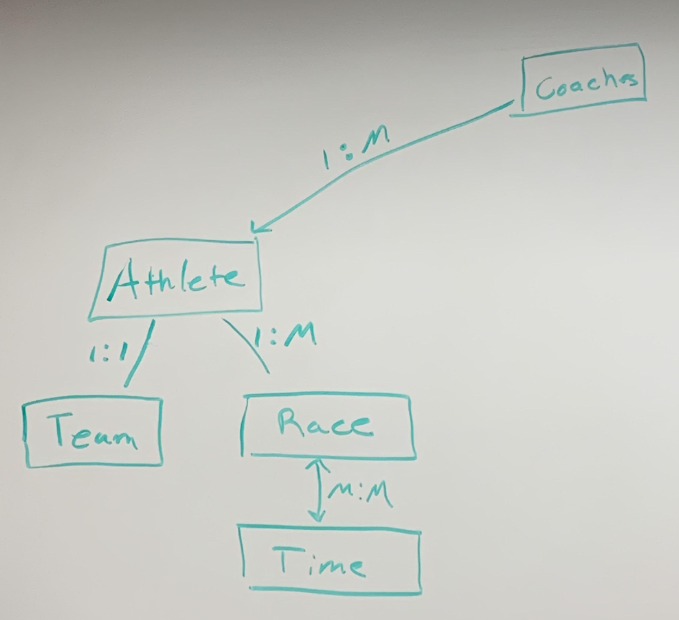 Coaches
1:M
Athlete
1:1
1:M
Team
Race
M:M
Time